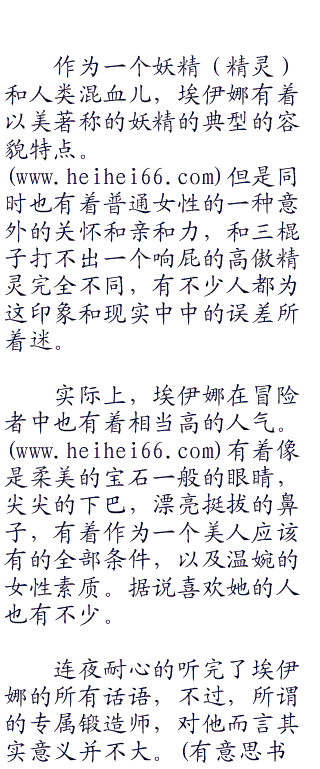 作为一个妖精（精灵）
和人类混血儿，埃伊娜有着
以美著称的妖精的典型的容
貌特点。
(www.heihei66.com)但是同
时也有着普通女性的一种意
外的关怀和亲和力，和三棍
子打不出一个响屁的高傲精
灵完全不同，有不少人都为
这印象和现实中中的误差所
着迷。
实际上，埃伊娜在冒险
者中也有着相当高的人气。
(www.heihei66.com)有着像
是柔美的宝石一般的眼睛，
尖尖的下巴，漂亮挺拔的鼻
子，有着作为一个美人应该
有的全部条件，以及温婉的
女性素质。据说喜欢她的人
也有不少。
连夜耐心的听完了埃伊
娜的所有话语，不过，所谓
的专属锻造师，对他而言其
实意义并不大。(有意思书